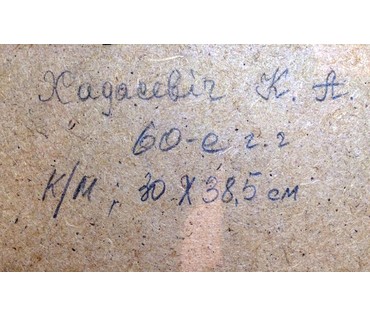 Хадасевіч К. А.
60-е г.г
К/М; 30 Х 38,5 см